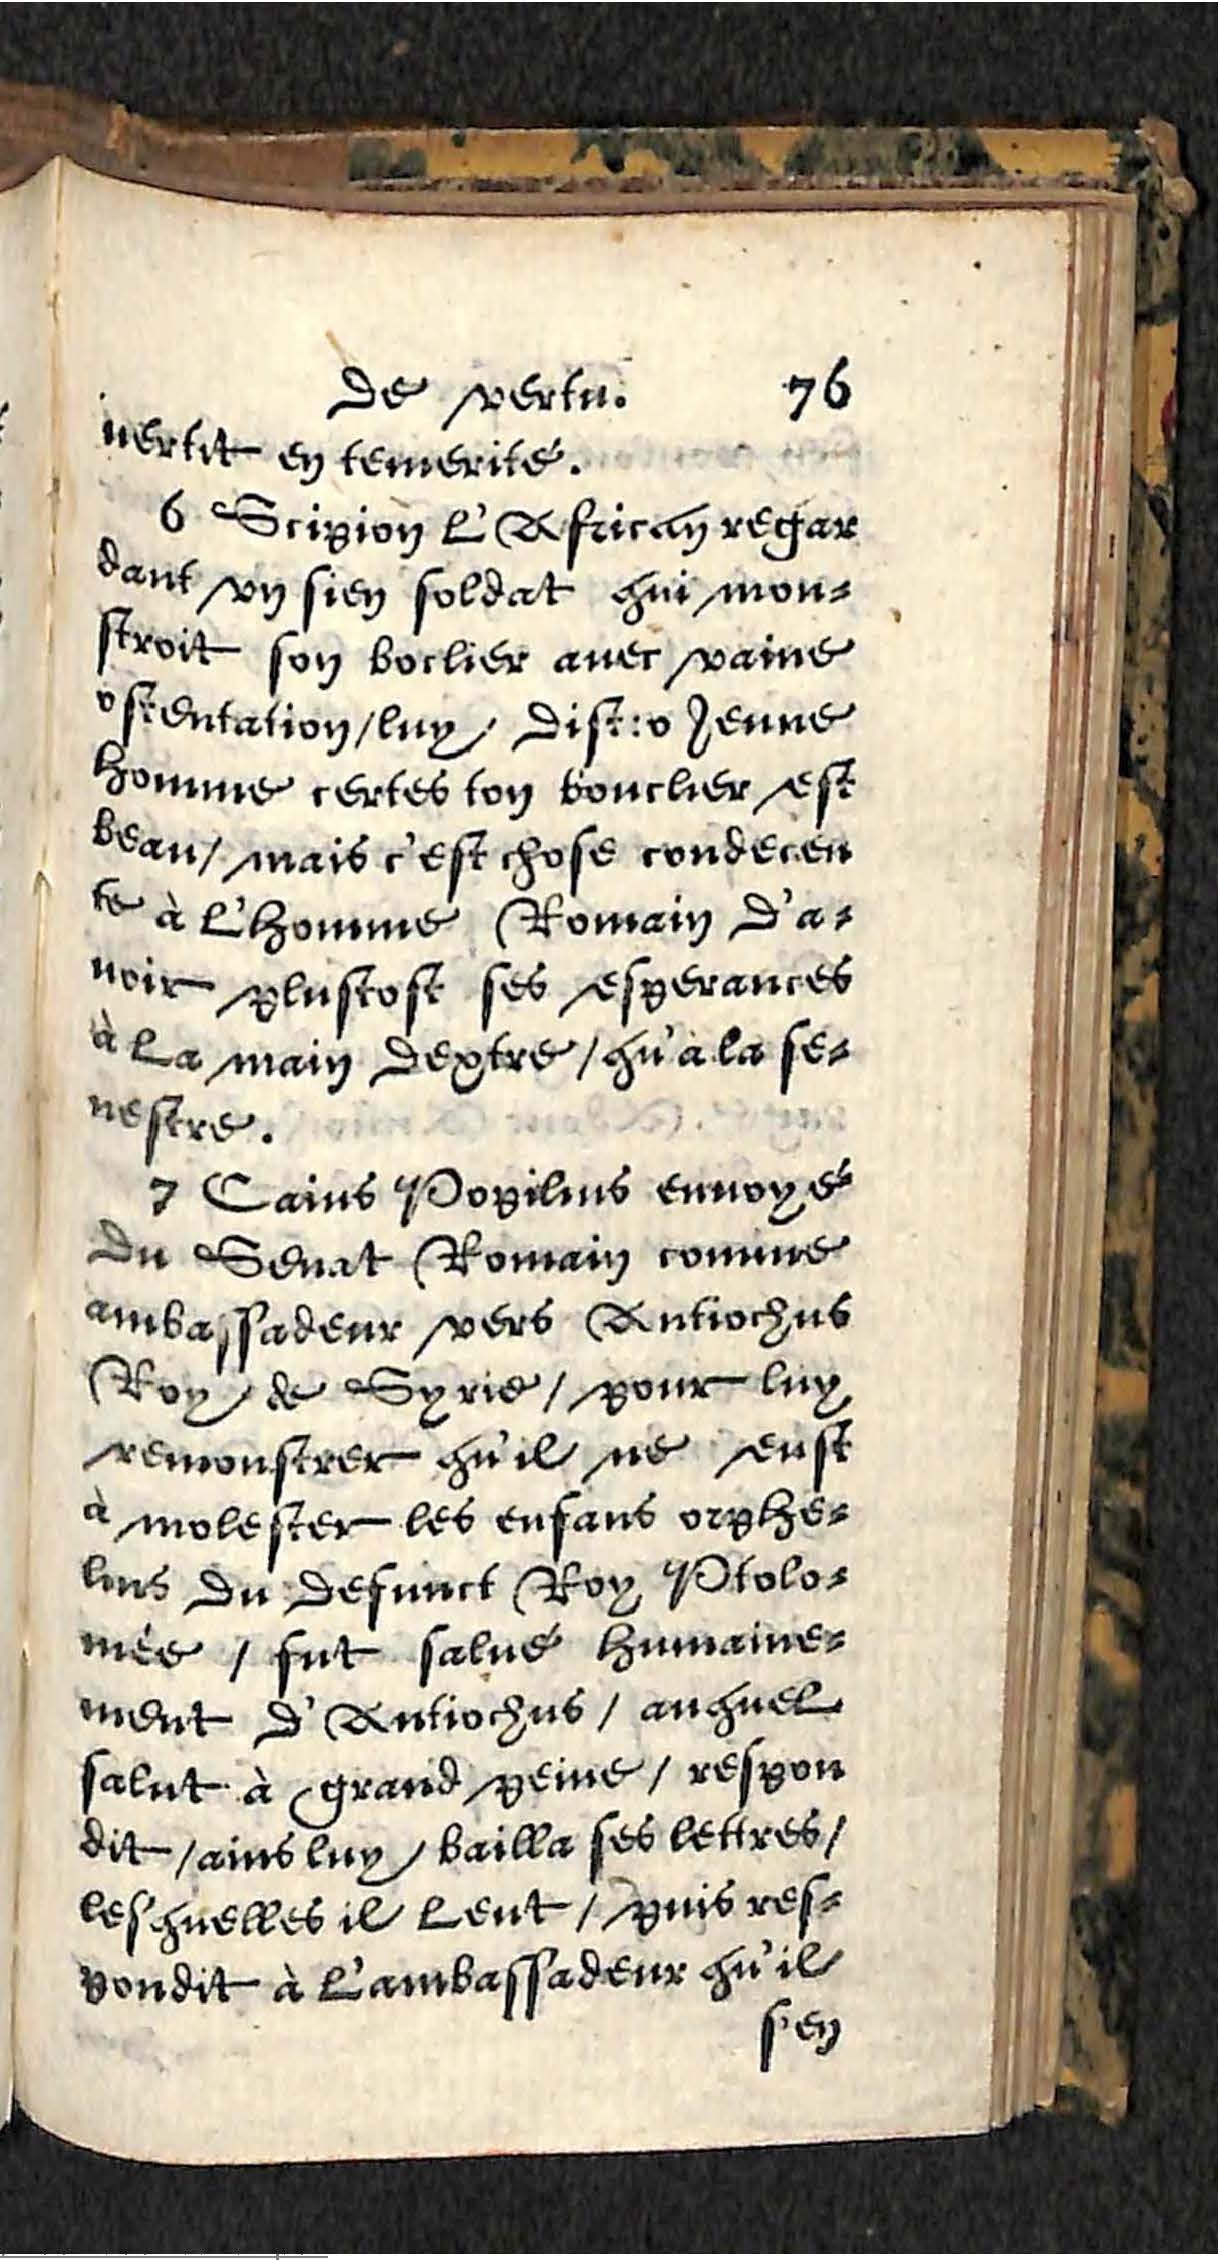 De vertu. 76
uertit en temerité.
6 Scipion L'African regar
dant vn sien soldat qui mon-
stroit son boclier auec vaine
ostentation/luy/ Dist:o Jeune
homme certes ton bouclier est
beau/ mais c'est chose condecen
te à L'homme Romain D'a-
uoir plustost ses esperances
à La main Dextre/qu'à la se-
nestre.
7 Caius Popilius enuoyé
Du Senat Romain comme
ambassadeur vers Antiochus
Roy de Syrie/ pour luy
remonstrer qu'il ne eust
à molester les enfans orphe-
lins Du Defunct Roy Ptolo-
mée / fut salué humaine-
ment D'Antiochus/ auquel
salut à grand peine/ respon
dit/ains luy bailla ses lettres/
lesquelles il Leut/ puis res-
pondit à L'ambassadeur qu'il
s'en